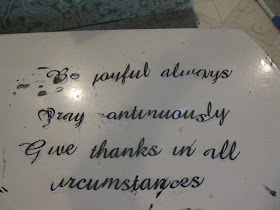 Be joyful always
Pray continuously
Give thanks in all
circumstances